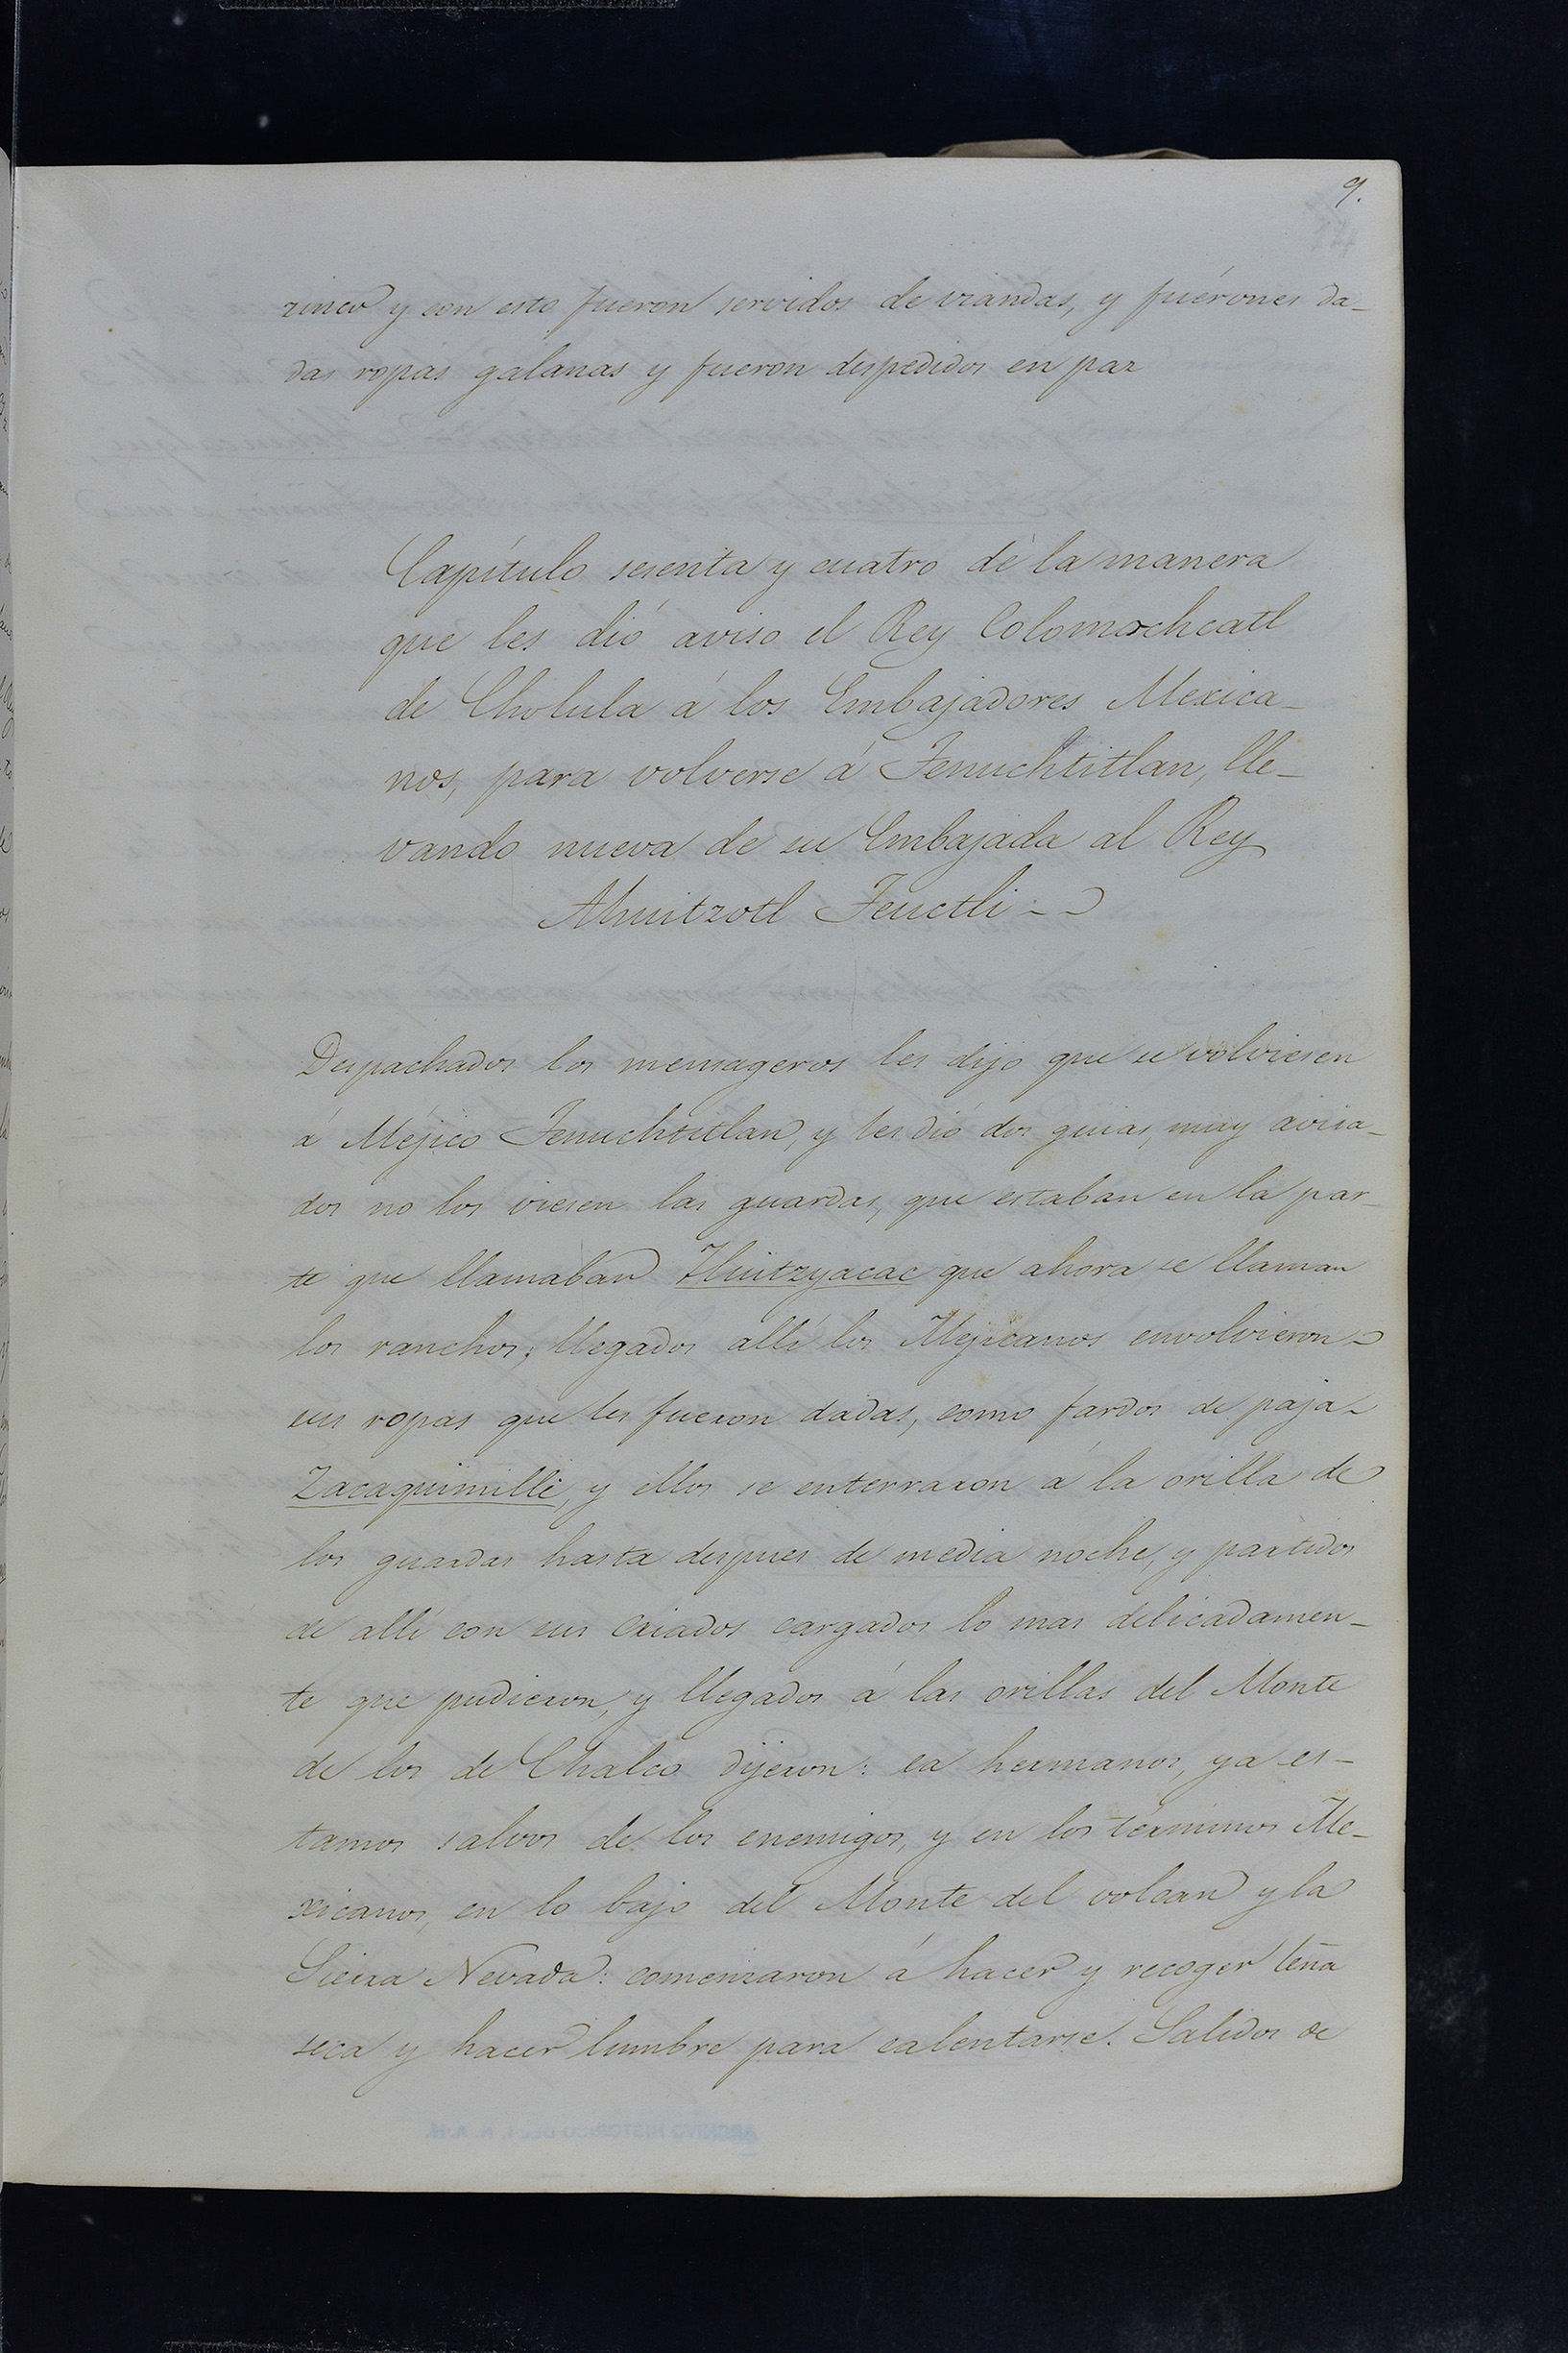 9.
zinco y con esto fueron servidos de viandas, y fuérones da-
das ropas galanas y fueron despedidos en paz
Capítulo sesenta y cuatro de la manera
que les dió aviso el Rey Colomochcatl
de Cholula á los Embajadores Mexica-
nos, para volverse á Tenuchtitlan, lle-
vando nueva de su Embajada al Rey
Ahuitzotl Teuctli
Despachados los mensageros les dijo que se volviesen
á Méjico Tenuchtitlan, y les dió dos guias, muy avisa-
dos no los viesen las guardas, que estaban en la par-
te que llamaban Huitzyacac que ahora se llaman
los ranchos; llegados allí los Mejicanos envolvieron
sus ropas que les fueron dadas, como fardos de paja
Zacaquimilli, y ellos se enterraron á la orilla de
los guardas hasta despues de media noche, y partidos
de allí con sus criados cargados lo mas delicadamen-
te que pudieron, y llegados á las orillas del Monte
de los de Chalco dijeron: ea hermanos, ya es-
tamos salvos de los enemigos, y en los términos Me-
xicanos, en lo bajo del Monte del volcan y la
Sierra Nevada: comenzaron á hacer y recoger leña
seca y hacer lumbre para calentarse. Salidos de